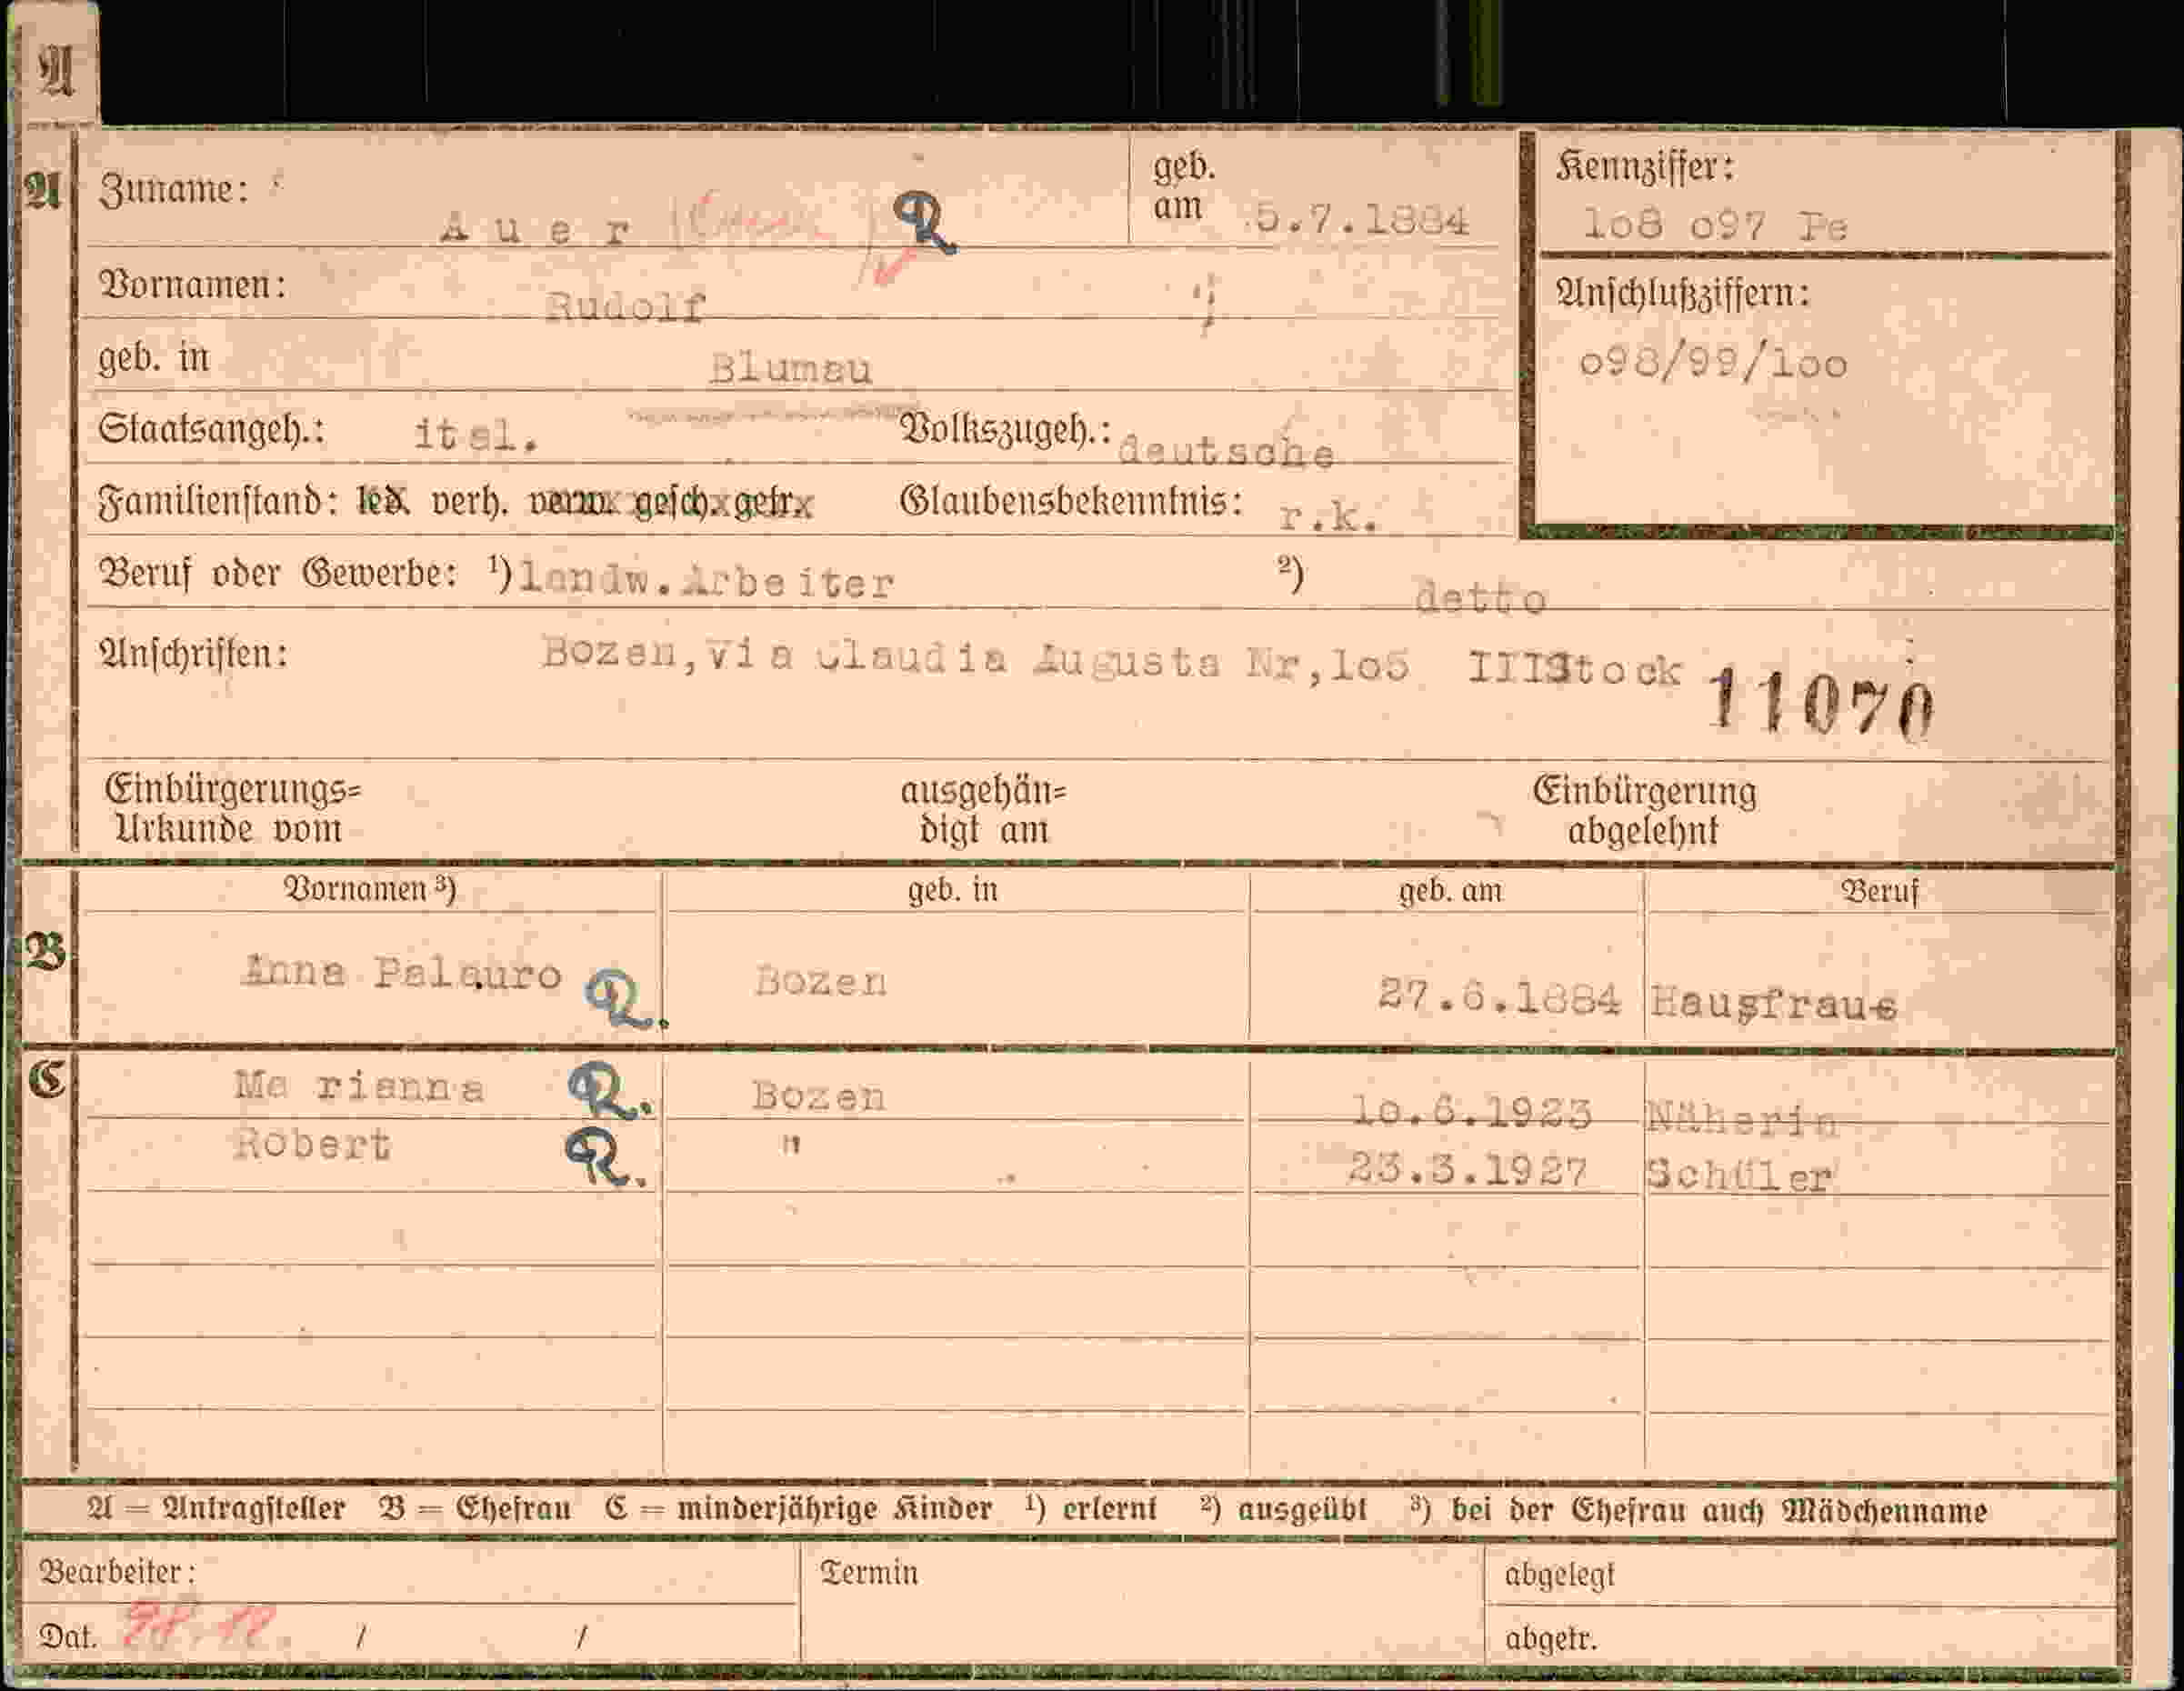 A
A Zuname: A u e r R geb. am 5.7.1884 Kennziffer: 1o8 o97 Pe
Vornamen: Rudolf
Anschlußziffern:
geb. in Blumau o98/99/1oo
Staatsangeh.: ital. Volkszugeh.: deutsche
Familienstand: led. verh. verw. gesch. getr. Glaubensbekenntnis: r.k.
Beruf oder Gewerbe: ¹) landw.Arbeiter ²) detto
Anschriften: Bozen,Via Claudia Augusta Nr,1o5 IIIStock 11070
Einbürgerungs= Urkunde vom ausgehän= digt am Einbürgerung abgelehnt
Vornamen ³) geb. in geb. am Beruf
B Anna Palauro R. Bozen 27.6.1884 Hausfrau
C Ma rianna R. Bozen 1o.6.1923 Näherin
Robert R. " 23.3.1927 Schüler
A = Antragsteller B = Ehefrau C = minderjährige Kinder ¹) erlernt ²) ausgeübt ³) bei der Ehefrau auch Mädchenname
Bearbeiter: Termin abgelegt
Dat. / / abgetr.